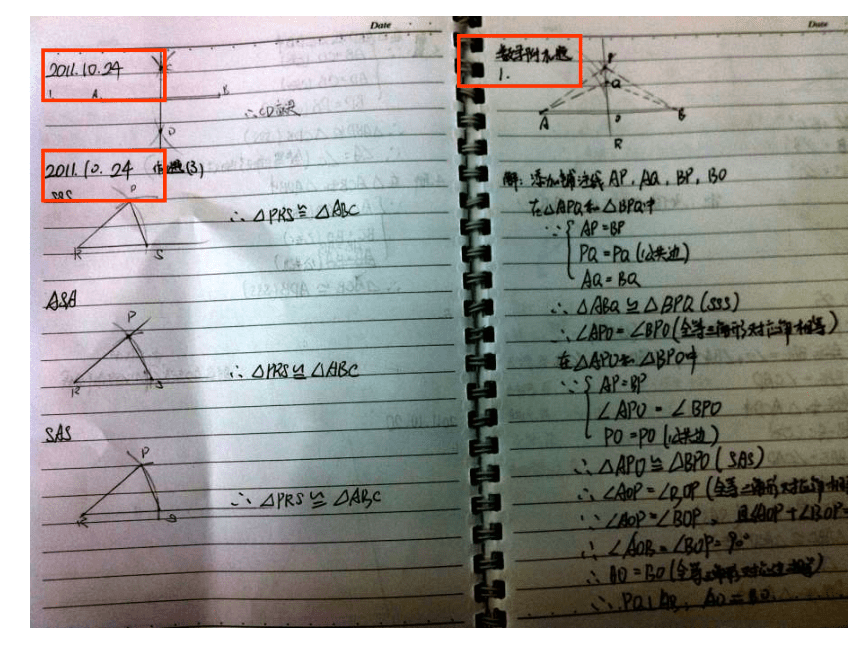 Date
2011.10.24
C
1. A B
∴CD
D
2011.10.24 (3)
SAS
P
R S
∴△PRS≌△ABC
ASA
P
R S
∴△PRS≌△ABC
SAS
P
R S
∴△PRS≌△ABC
Date
数学附加题
1.
P
Q
A O B
R
解: 添加辅注线 AP, AQ, BP, BO
在△APQ和△BPQ中
∵{AP=BP
PQ=PQ(公共边)
AQ=BQ
∴△ABQ≌△BPQ(SSS)
∴∠APO=∠BPO(全等三角形对应角相等)
在△APO和△BPO中
∵{AP=BP
∠APO=∠BPO
PO=PO(公共边)
∴△APO≌△BPO(SAS)
∴∠AOP=∠BOP(全等三角形对应角相
∵∠AOP=∠BOP, 且∠AOP+∠BOP=
∴∠AOB=∠BOP=90°
∴AO=BO(全等三角形对应边相等)
∴PQ⊥AB, AO=BO.